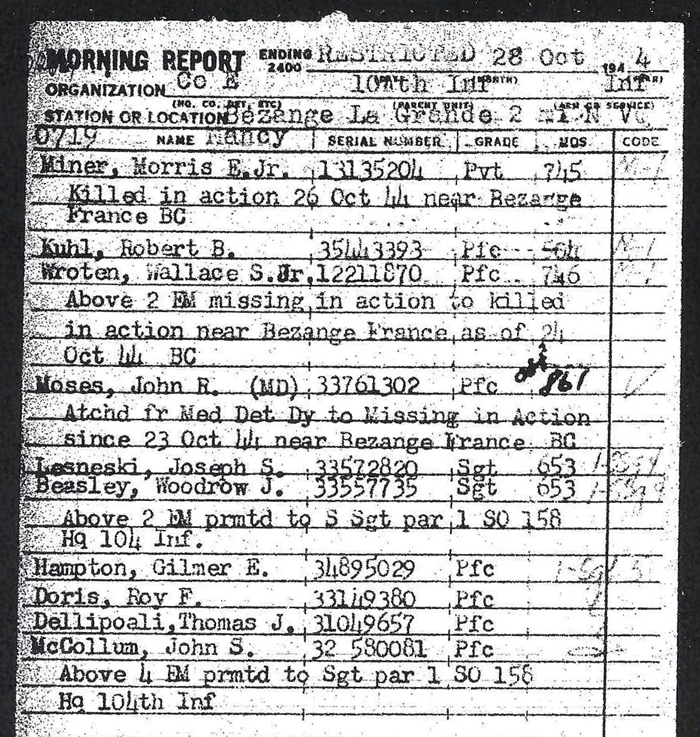 MORNING REPORT ENDING 2400 RESTRICTED 28 Oct 194 4
ORGANIZATION Co E 104th Inf Inf
STATION OR LOCATION Bezange La Grande 2 mi N
0719 NAME Nancy SERIAL NUMBER GRADE MOS CODE
Miner, Morris E.Jr. 13135204 Pvt 745
Killed in action 26 Oct 44 near Bezange
France BC
Kuhl, Robert B. 35443393 Pfc 504
Wroten, Wallace S.Jr. 12211870 Pfc 746
Above 2 EM missing in action to killed
in action near Bezange France as of 24
Oct 44 BC
Moses, John R. (MD) 33761302 Pfc 861
Atchd fr Med Det Dy to Missing in Action
since 23 Oct 44 near Bezange France BC
Lesneski, Joseph S. 33572820 Sgt 653
Beasley, Woodrow J. 33557735 Sgt 653
Above 2 EM prmtd to S Sgt par 1 SO 158
Hq 104 Inf.
Hampton, Gilmer E. 34895029 Pfc
Doris, Roy F. 33149380 Pfc
Dellipoali,Thomas J. 31049657 Pfc
McCollum, John S. 32 580081 Pfc
Above 4 EM prmtd to Sgt par 1 SO 158
Hq 104th Inf